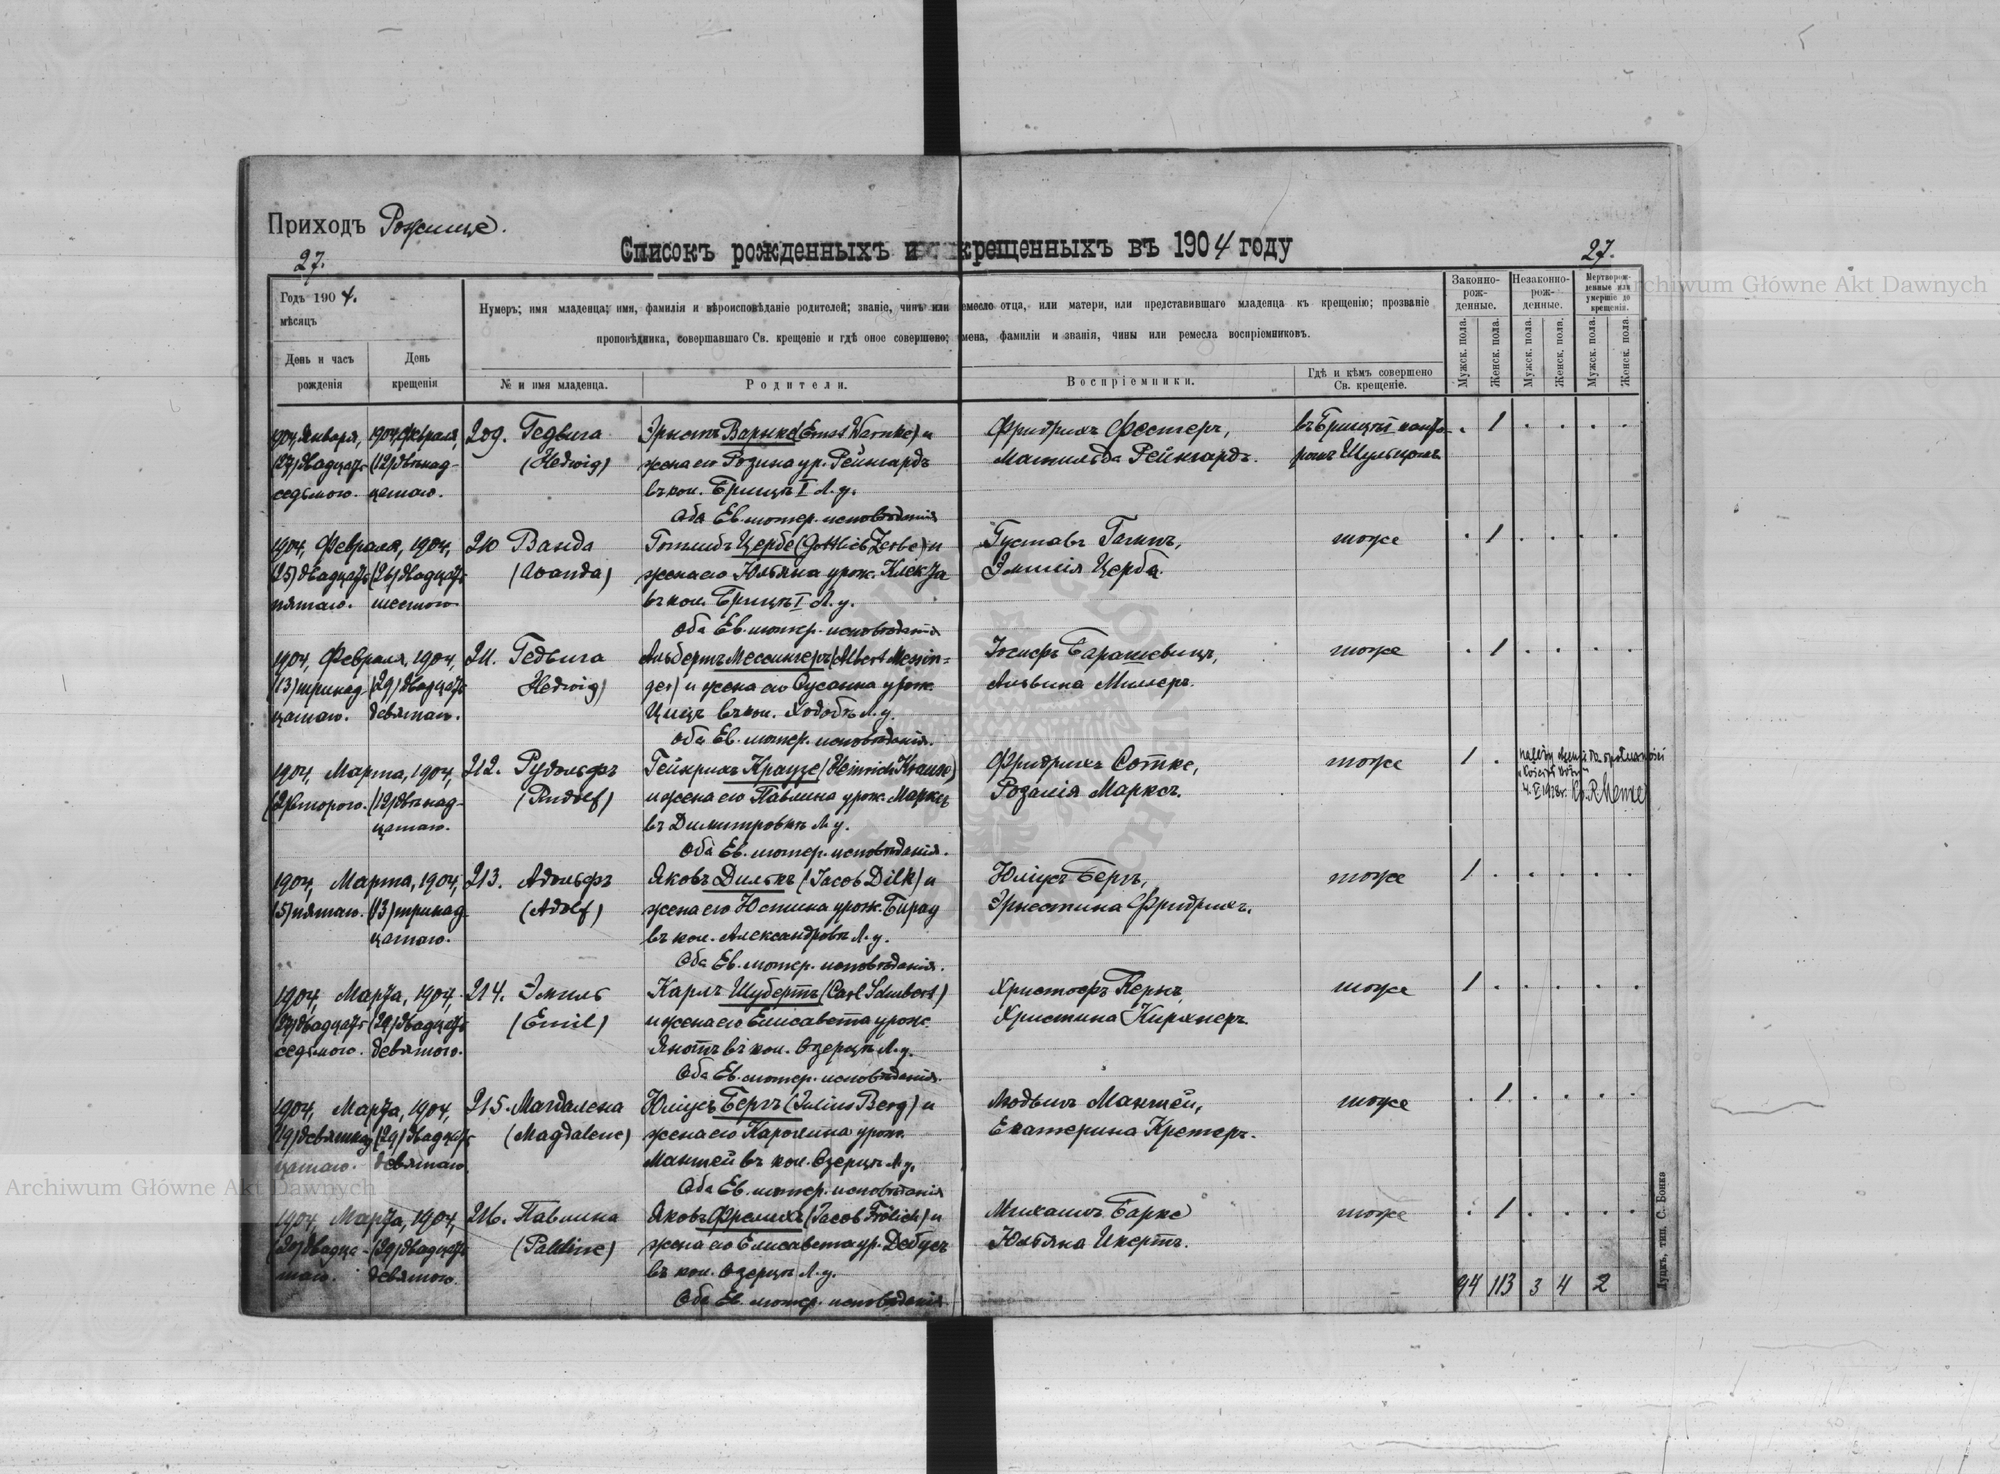 Приходъ Рожище.
27.
Списокъ рожденныхъ и крещенныхъ въ 1904 году
27.
Годъ 1904.
мѣсяцъ
День и часъ рожденія
День крещенія
Нумеръ; имя младенца; имя, фамилія и вѣроисповѣданіе родителей; званіе, чинъ или ремесло отца, или матери, или представившаго младенца къ крещенію; прозваніе
проповѣдника, совершавшаго Св. крещеніе и гдѣ оное совершено; имена, фамиліи и званія, чины или ремесла воспріемниковъ.
№ и имя младенца.
Родители.
Воспріемники.
Гдѣ и кѣмъ совершено
Св. крещеніе.
Законно-
рож-
денные.
Незаконно-
рож-
денные.
Мертворож-
денные или
умершіе до
крещенія.
Мужск. пола.
Женск. пола.
Мужск. пола.
Женск. пола.
Мужск. пола.
Женск. пола.
1904, Января, 1904, Февраля, 209. Гедвига Эрнстъ Варнке (Ernst Warnke) и Фридрихъ Фостеръ, въ Брищѣ I канто- . 1 . . . .
(27) двадцать (12) двѣнад- (Hedwig) жена его Розина ур. Рейнгардъ Матильда Рейнгардъ. ромъ Шульцомъ
седьмого. цатаго. въ кол. Брищѣ I Л. у.
Оба Ев. лютер. исповѣданія
1904, Февраля, 1904, 210 Ванда Готлибъ Цербе (Gottlieb Zerbe) и Густавъ тоже . 1 . . . .
(25) двадцать (26) двадцать (Wanda) жена его Юльяна урож. Эмилія Церба.
пятаго. шестого въ кол. Брищѣ I Л. у.
Оба Ев. лютер. исповѣданія
1904, Февраля, 1904, 211. Гедвига Альбертъ Мессингеръ (Albert Messin- Іосифъ Барашевицъ, тоже . 1 . . . .
(13) тринад- (29) двадцать Hedwig) ger) и жена его Сусанна урож. Альвина Миллеръ.
цатаго. девятаго. въ кол. Л. у.
Оба Ев. лютер. исповѣданія.
1904, Марта, 1904, 212. Рудольфъ Гейнрихъ Краузе (Heinrich Krause) Фридрихъ Сотке, тоже 1 .
(2) второго. (12) двѣнад- (Rudolf) и жена его Павлина урож. Марксъ Розалія Марксъ.
4. V 1938 r.
цатаго. въ Димитровкѣ Л. у.
Оба Ев. лютер. исповѣданія.
1904, Марта, 1904, 213. Адольфъ Яковъ Дилькъ (Jacob Dilk) и Юліусъ Бергъ, тоже 1 . . . . .
(5) пятаго. (13) тринад- (Adolf) жена его Юстина урож. Эрнестина Фридрихъ.
цатаго. въ кол. Александровкѣ Л. у.
Оба Ев. лютер. исповѣданія.
1904, Марта, 1904, 214. Эмиль Карлъ Шубертъ (Carl Schubert) Христофъ Кернъ, тоже 1 . . . . .
(27) двадцать (29) двадцать (Emil) и жена его Елисавета урож. Христина Кирхнеръ.
седьмого. девятого. въ кол. Озерцѣ Л. у.
Оба Ев. лютер. исповѣданія.
1904, Марта, 1904, 215. Магдалена Юліусъ Бергъ (Julius Berg) и Людвигъ Мантей, тоже . 1 . . . .
(19) девятнад (29) двадцать (Magdalene) жена его Каролина урож. Екатерина Кремеръ.
цатаго. девятаго. Мантей въ кол. Озерцѣ Л. у.
Оба Ев. лютер. исповѣданія
1904, Марта, 1904, 216. Павлина Яковъ Фрелихъ (Jacob Frölich) и Михаилъ Барке тоже . 1 . . . .
(20) двадца- (29) двадцать (Pauline) жена его Елисавета ур. Дебусъ Юльяна Икертъ.
таго. девятого. въ кол. Озерцѣ Л. у.
94 113 3 4 2
Оба Ев. лютер. исповѣданія
Луцкъ, тип. С. Бонка
Archiwum Główne Akt Dawnych
Archiwum Główne Akt Dawnych